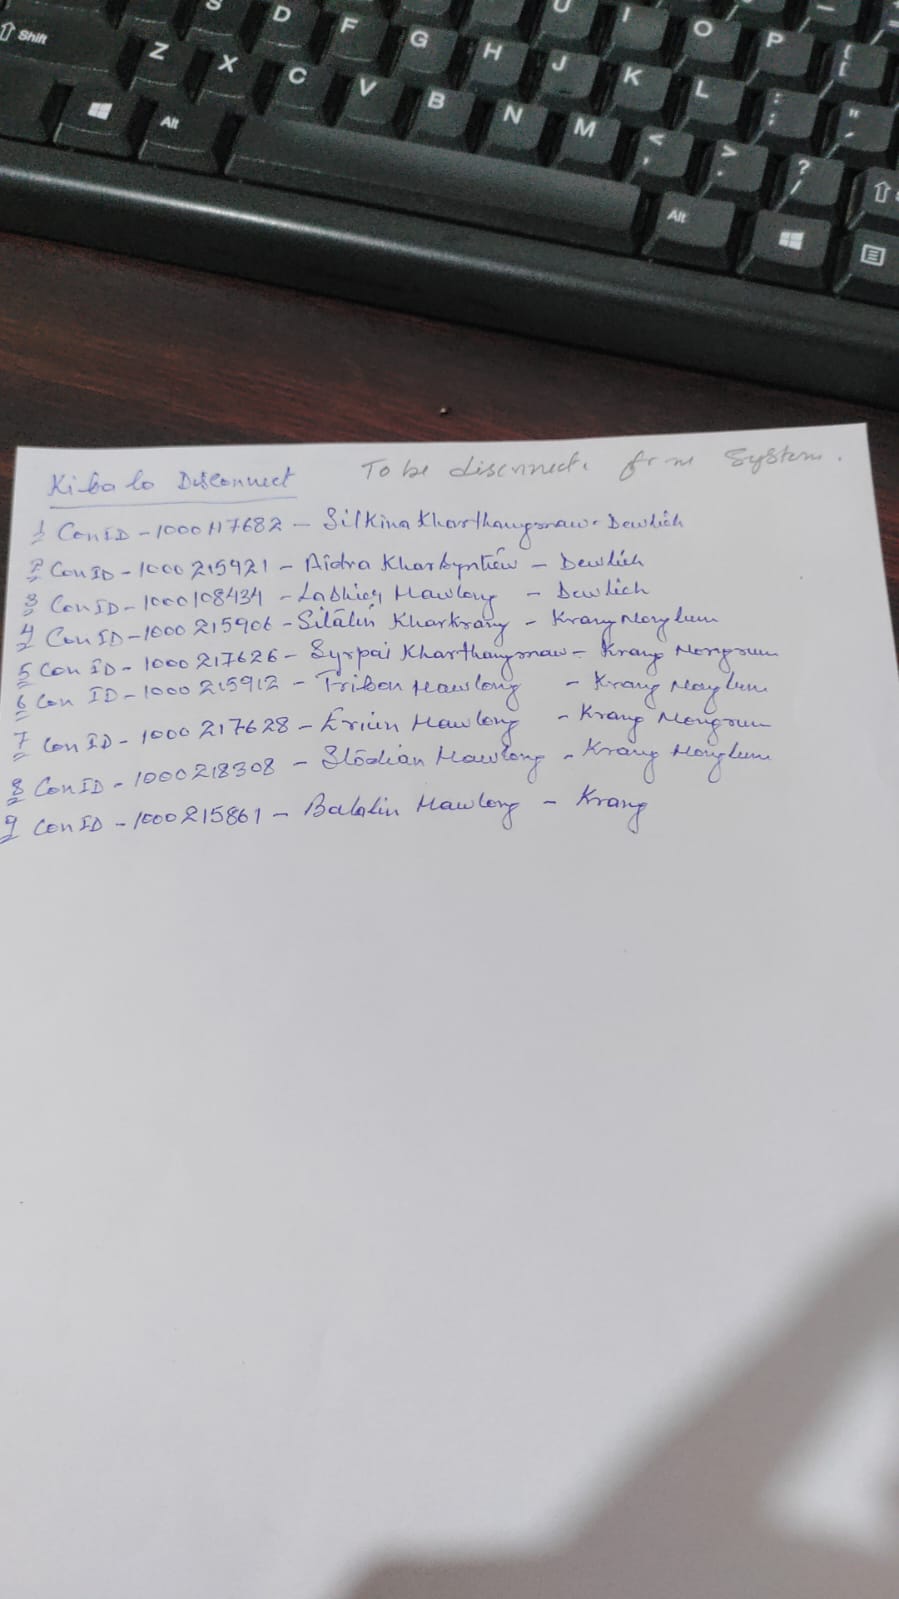 S D F G H J K L U I O P
⇧ Shift Z X C V B N M < , > . ? / : ; " '
Alt Alt
Ki ba lo Disconnect To be disconnect. from System.
1 Con ID - 1000117682 - Silkina Kharthangmaw - Dewlieh
2 Con ID - 1000215921 - Aidra Kharbyntiew - Dewlieh
3 Con ID - 1000108434 - Mawlong - Dewlieh
4 Con ID - 1000215906 - Sitalin Kharkrang - Krang Nonglum
5 Con ID - 1000217626 - Syrpai Kharthangmaw - Krang
6 Con ID - 1000215912 - Tribon Mawlong - Krang Nonglum
7 Con ID - 1000217628 - Mawlong - Krang
8 Con ID - 1000218308 - Mawlong - Krang Nonglum
9 Con ID - 1000215861 - Balalin Mawlong - Krang